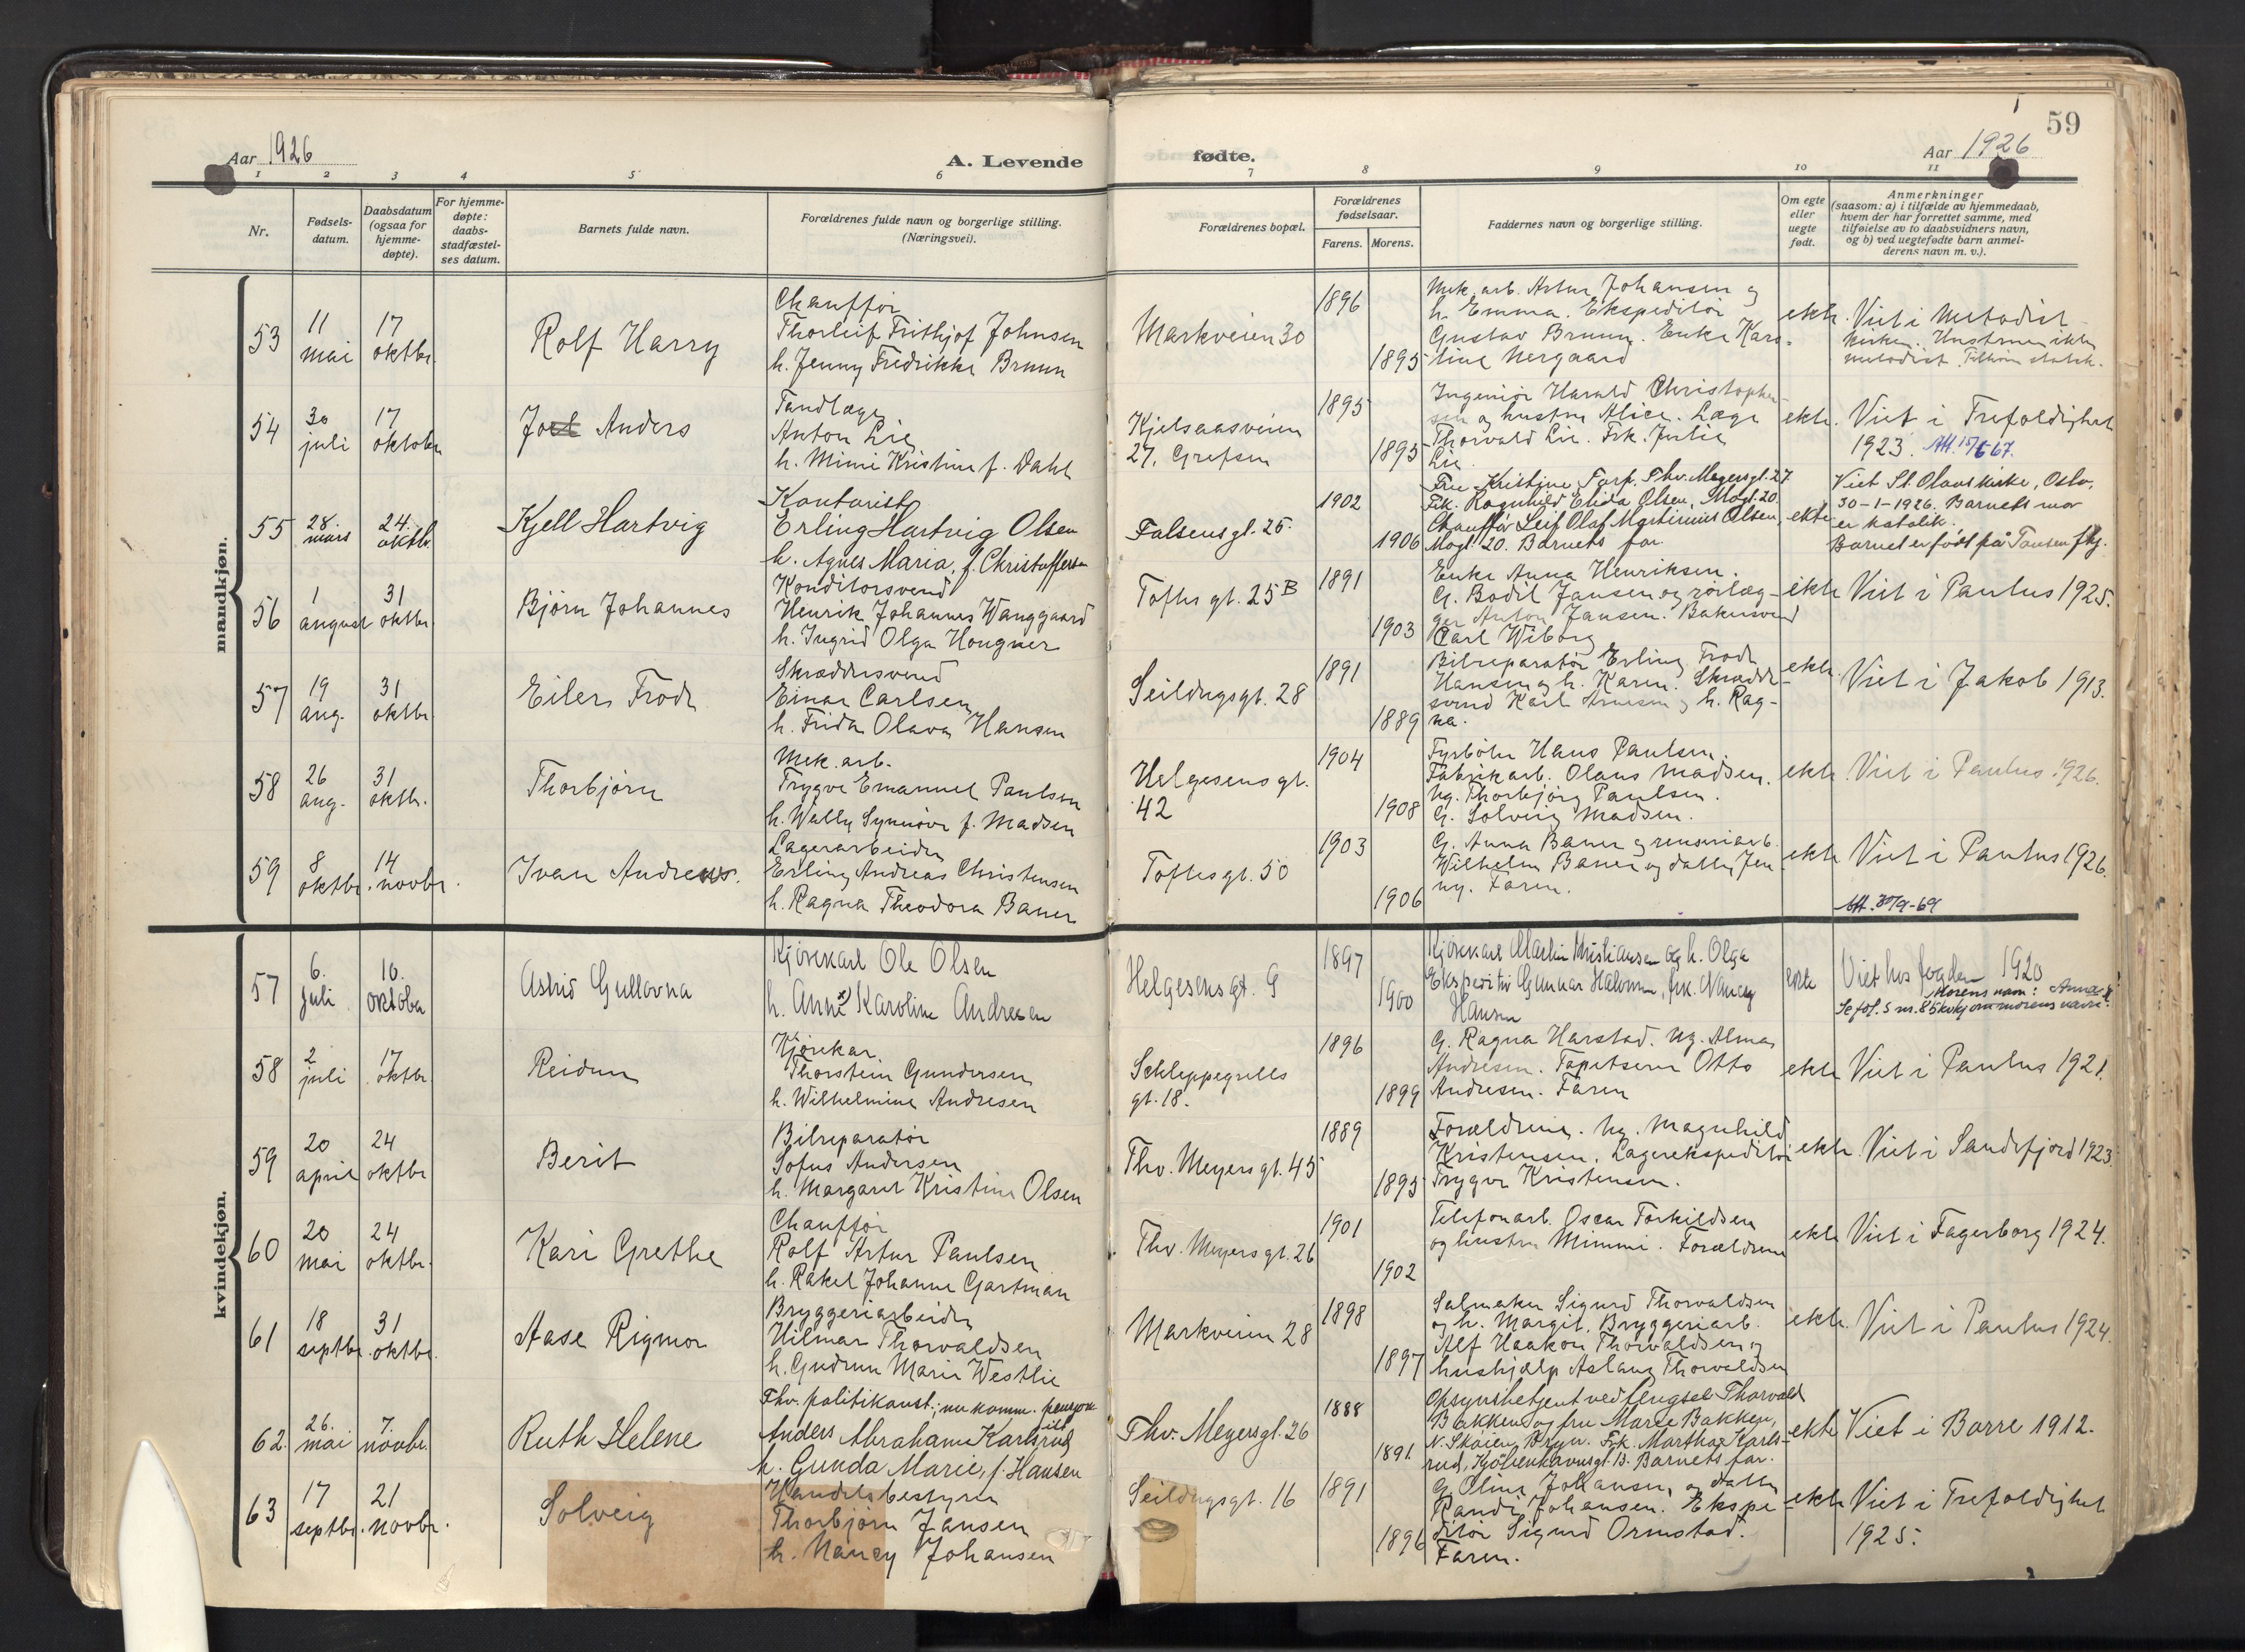 59
Aar 1926
A. Levende
fødte.
Aar 1926
1 2 3 4 5 6 7 8 9 10 11
Nr.
Fødsels-
datum.
Daabsdatum
(ogsaa for
hjemme-
døpte).
For hjemme-
døpte:
daabs-
stadfæstel-
ses datum.
Barnets fulde navn.
Forældrenes fulde navn og borgerlige stilling.
(Næringsvei).
Forældrenes bopæl.
Forældrenes
fødselsaar.
Farens. Morens.
Faddernes navn og borgerlige stilling.
Om egte
eller
uegte
født.
Anmerkninger
(saasom: a) i tilfælde av hjemmedaab,
hvem der har forrettet samme, med
tilføielse av to daabsvidners navn,
og b) ved uegtefødte barn anmel-
derens navn m. v.).
mandkjøn.
53
11
mai
17
oktbr.
Rolf Harry
Chauffør
Thorleif Frithjof Johnsen
h. Jenny Fredrikke Bruun
Markveien 30
1896
1895
Mek. arb. Artur Johansen og
h. Emma. Ekspeditør
Gustav Bruun. Enke Karo-
line Nergaard
ekte.
Viet i Metodist-
kirken. Hustruen ikke
metodist. Tilhører statsk.
54
30
juli
17
oktober
Joel Anders
Tandlæge
Anton Lie
h. Mimi Kristine f. Dahl
Kjelsaasveien
27, Grefsen
1895
1895
Ingeniør Harald Christopher-
sen og hustru Alice. Læge
Thorvald Lie. Frk. Julie
Lie.
ekte.
Viet i Trefoldighet
1923.
55
28.
mars
24.
oktbr.
Kjell Hartvig
Kontorist
Erling Hartvig Olsen
h. Agnes Maria, f. Christoffersen
Falsensgt. 25.
1902
1906
Fru Kristine Torp. Thv. Meyersgt. 27.
Frk. Ragnhild Elida Olsen, Mogt. 20.
Chauffør Leif Olaf Martinius Olsen,
Mogt. 20. Barnets far
ekte
Viet St. Olavs kirke, Oslo,
30-1-1926. Barnets mor
er katolik.
Barnet er født på Tonsen
56
1
august
31
oktbr.
Bjørn Johannes
Konditorsvend
Henrik Johannes Wanggaard
h. Ingrid Olga Hougner
Toftes gt. 25 B
1891
1903
Enke Anna Henriksen.
G. Bodil Jansen og rørlæg-
ger Anton Jansen. Bakersvend
Carl Wiborg
ekte
Viet i Paulus 1925.
57
19
aug.
31
oktbr.
Eilers Frode
Skræddersvend
Einar Carlsen
h. Frida Olava Hansen
Seildugsgt. 28
1891
1889
Bilreparatør Erling Frode
Hansen og h. Karen. Skrædder-
svend Karl Arnesen og h. Rag-
na.
ekte.
Viet i Jakob 1913.
58
26
aug.
31
oktbr.
Thorbjørn
Mek. arb.
Trygve Emanuel Paulsen
h. Wally Synnøve f. Madsen
Helgesens gt.
42
1904
1908
Fyrbøter Hans Paulsen.
Fabrikarb. Olaus Madsen.
Ug. Thorbjørg Paulsen.
G. Solveig Madsen.
ekte
Viet i Paulus 1926.
59
8
oktbr.
14
novbr.
Ivan Andrews.
Lagerarbeider
Erling Andreas Christensen
h. Ragna Theodora Bauer
Toftesgt. 50
1903
1906
G. Anna Bauer og renseriarb.
Wilhelm Bauer og datter Jen-
ny. Faren.
ekte
Viet i Paulus 1926.
Att. 30/9-69
kvindekjøn.
57
6.
juli
10.
oktober
Astrid Gullovna
Kjørekarl Ole Olsen
h. Anne x) Karoline Andresen
Helgesens gt. 9
1897
1900
Kjørekarl Martin Kristiansen og h. Olga
Ekspeditør Gunnar Halvorsen, frk. Nancy
Hansen
ekte
Viet hos fogden 1920
Morens navn: Anna
Se fol. 5 nr. 85 kvkj om morens navn.
58
2
juli
17
oktbr
Reidun
Kjørekar
Thorstein Gundersen
h. Wilhelmine Andresen
Schleppegrells
gt. 18.
1896
1899
G. Ragna Harstad. Ug. Alma
Andresen. Tapetserer Otto
Andresen. Faren
ekte
Viet i Paulus 1921.
59
20
april
24
oktbr
Berit
Bilreparatør
Sofus Andersen
h. Margaret Kristine Olsen
Thv. Meyers gt. 45
1889
1895
Forældrene. Ug. Magnhild
Kristensen. Lagerekspeditør
Trygve Kristensen.
ekte
Viet i Sandefjord 1923.
60
20
mai
24
oktbr.
Kari Grethe
Chauffør
Rolf Artur Paulsen
h. Rakel Johanne Gartman
Thv. Meyers gt. 26
1901
1902
Telefonarb. Oscar Torkildsen
og hustru Mimmi. Forældrene
ekte
Viet i Fagerborg 1924.
61
18
septbr.
31
oktbr.
Aase Rigmor
Bryggeriarbeider
Hilmar Thorvaldsen
h. Gudrun Marie Westlie
Markveien 28
1898
1897
Salmaker Sigurd Thorvaldsen
og h. Margit. Bryggeriarb.
Alf Haakon Thorvaldsen og
hushjælp Aslaug Thorvaldsen
ekte.
Viet i Paulus 1924.
62.
26.
mai
7.
novbr.
Ruth Helene
Thv. politikonst.; nu komm. pensjon
Anders Abraham Karlsrud
h. Gunda Marie, f. Hansen
Thv. Meyersgt. 26
1888
1891.
Opsynsbetjent ved fengsel Thorvald
Bakken og fru Marie Bakken,
N. Skøien, Bryn. Frk. Martha Karls-
rud, Kjøbenhavnsgt. 13. Barnets far.
ekte
Viet i Borre 1912.
63
17
septbr.
21
novbr.
Solveig
Handelsbestyrer
Thorbjørn Jansen
h. Nancy Johansen
Seildugsgt. 16
1891
1896
G. Oline Johansen og datter
Randi Johansen. Ekspe-
ditør Sigurd Ormstad.
Faren.
ekte
Viet i Trefoldighet
1925.